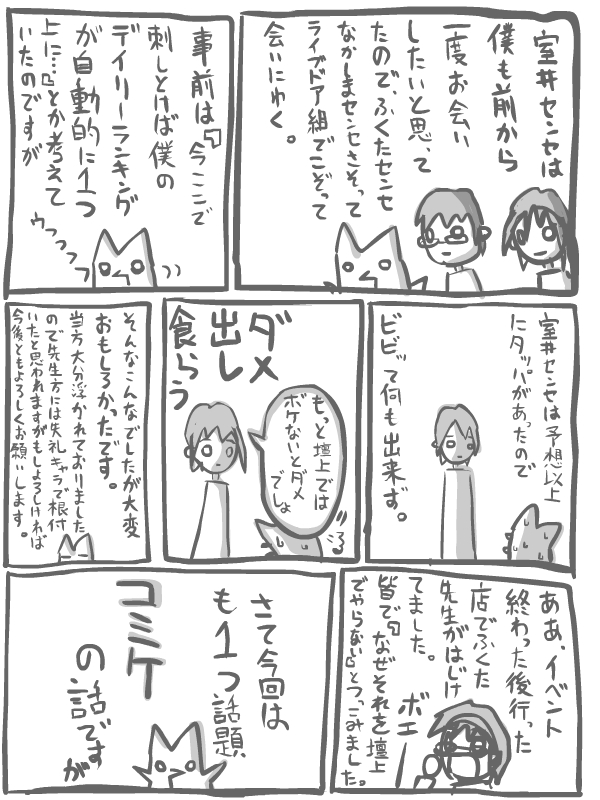 室井センセは
僕も前から
一度お会い
したいと思って
たので、ふくたセンセ
なかしまセンセさそって
ライブドア組でこぞって
会いにゆく。
事前は『今ここで
刺しとけば僕の
デイリーランキング
が自動的に1つ
上に…』とか考えて
いたのですが
ウフフフフ
室井センセは予想以上
にタッパがあったので
ビビッて何も出来ず。
もっと壇上では
ボケないとダメ
でしょ
ダメ
出し
食らう
そんなこんなでしたが大変
おもしろかったです。
当方大分浮かれておりました
ので先生方には失礼キャラで根付
いたと思われますがもしよろしければ
今後ともよろしくお願いします。
ああ、イベント
終わった後行った
店でふくた
先生がはじけ
てました。
皆で『なぜそれを壇上
でやらない』とつっこみました。
ボエー
さて今回は
も1つ話題
コミケ
の話ですが